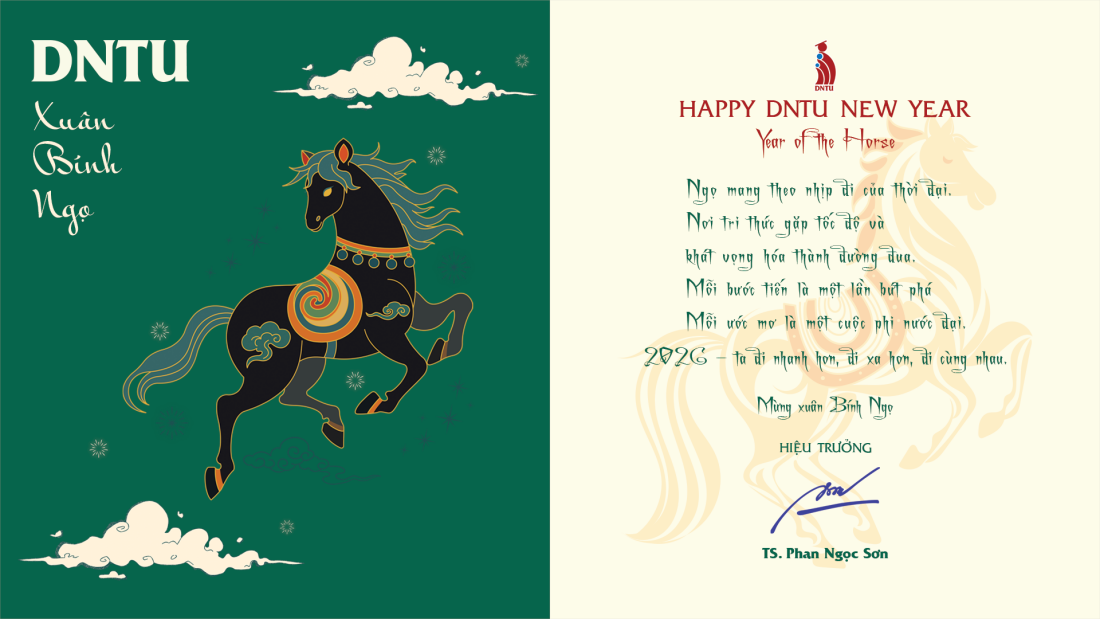 DNTU
Xuân
Bính
Ngọ
DNTU
HAPPY DNTU NEW YEAR
Year of the Horse
Ngọ mang theo nhịp đi của thời đại.
Nơi tri thức gặp tốc độ và
khát vọng hóa thành đường đua.
Mỗi bước tiến là một lần bứt phá
Mỗi ước mơ là một cuộc phi nước đại.
2026 – ta đi nhanh hơn, đi xa hơn, đi cùng nhau.
Mừng xuân Bính Ngọ
HIỆU TRƯỞNG
TS. Phan Ngọc Sơn